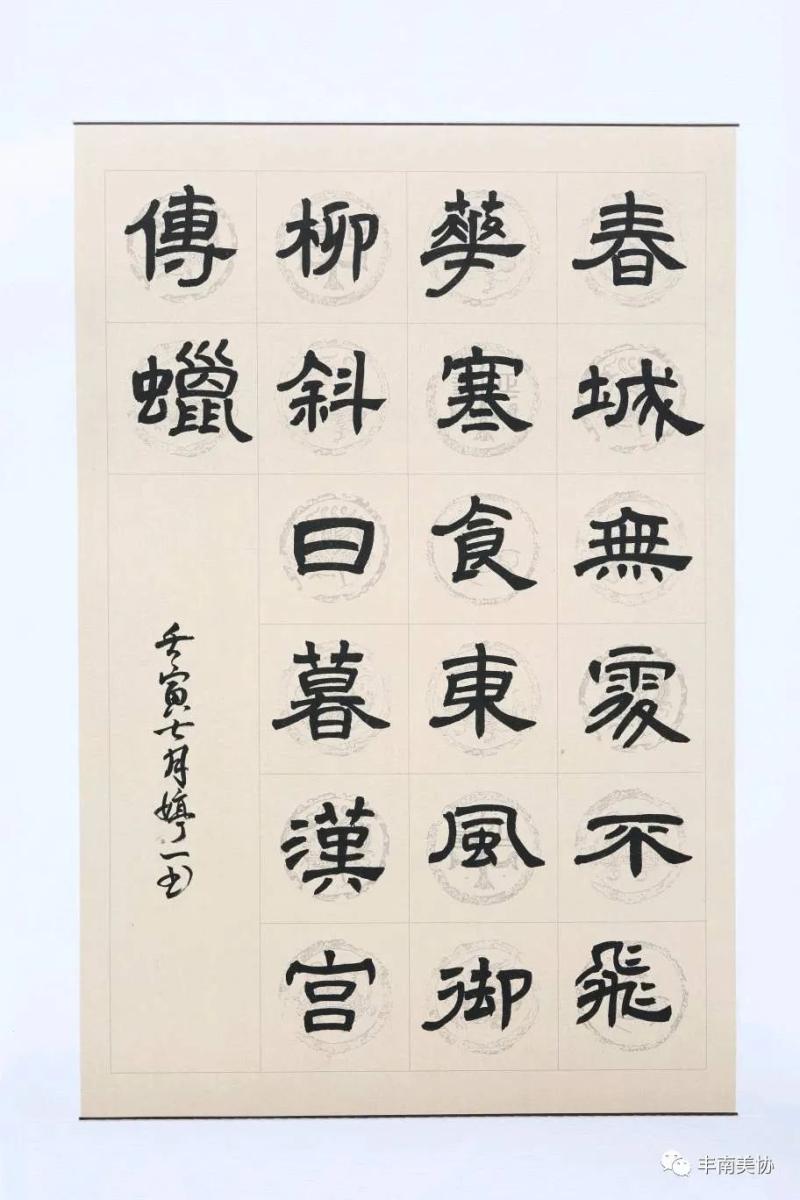 春城無處不飛
華寒食東風御
柳斜日暮漢宮
傳蠟
壬寅七月婷一书
丰南美协